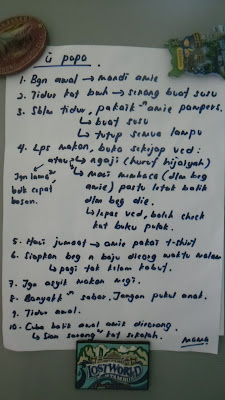 ü papa
1. Bgn awal → mandi amie
2. Tidur kat bawh → senang buat susu
3. Sblm tidur, pakaik²n amie pampers.
↳ buat susu
↳ tutup semua lampu
4. Lps makan, buka sekejap ved:
atau → ngaji (huruf hijaiyah)
↳ Masi membaca (dlm beg
Jgn lama² amie) pastu letak balik
budk cepat dlm beg die.
bosan. ↳ lepas ved, boleh check
kat buku pulak.
5. Hari jumaat → amie pakai t-shirt
6. Siapkan beg n baju dieorg waktu malam
↳ pagi tak kelam kabut.
7. Jgn asyik makan megi.
8. Banyakk²n sabar. Jangan pukul anak.
9. Tidur awal.
10. Cuba balik awal amik dieorang.
↳ sian sorang² kat sekolah.
mama
LOST WORLD